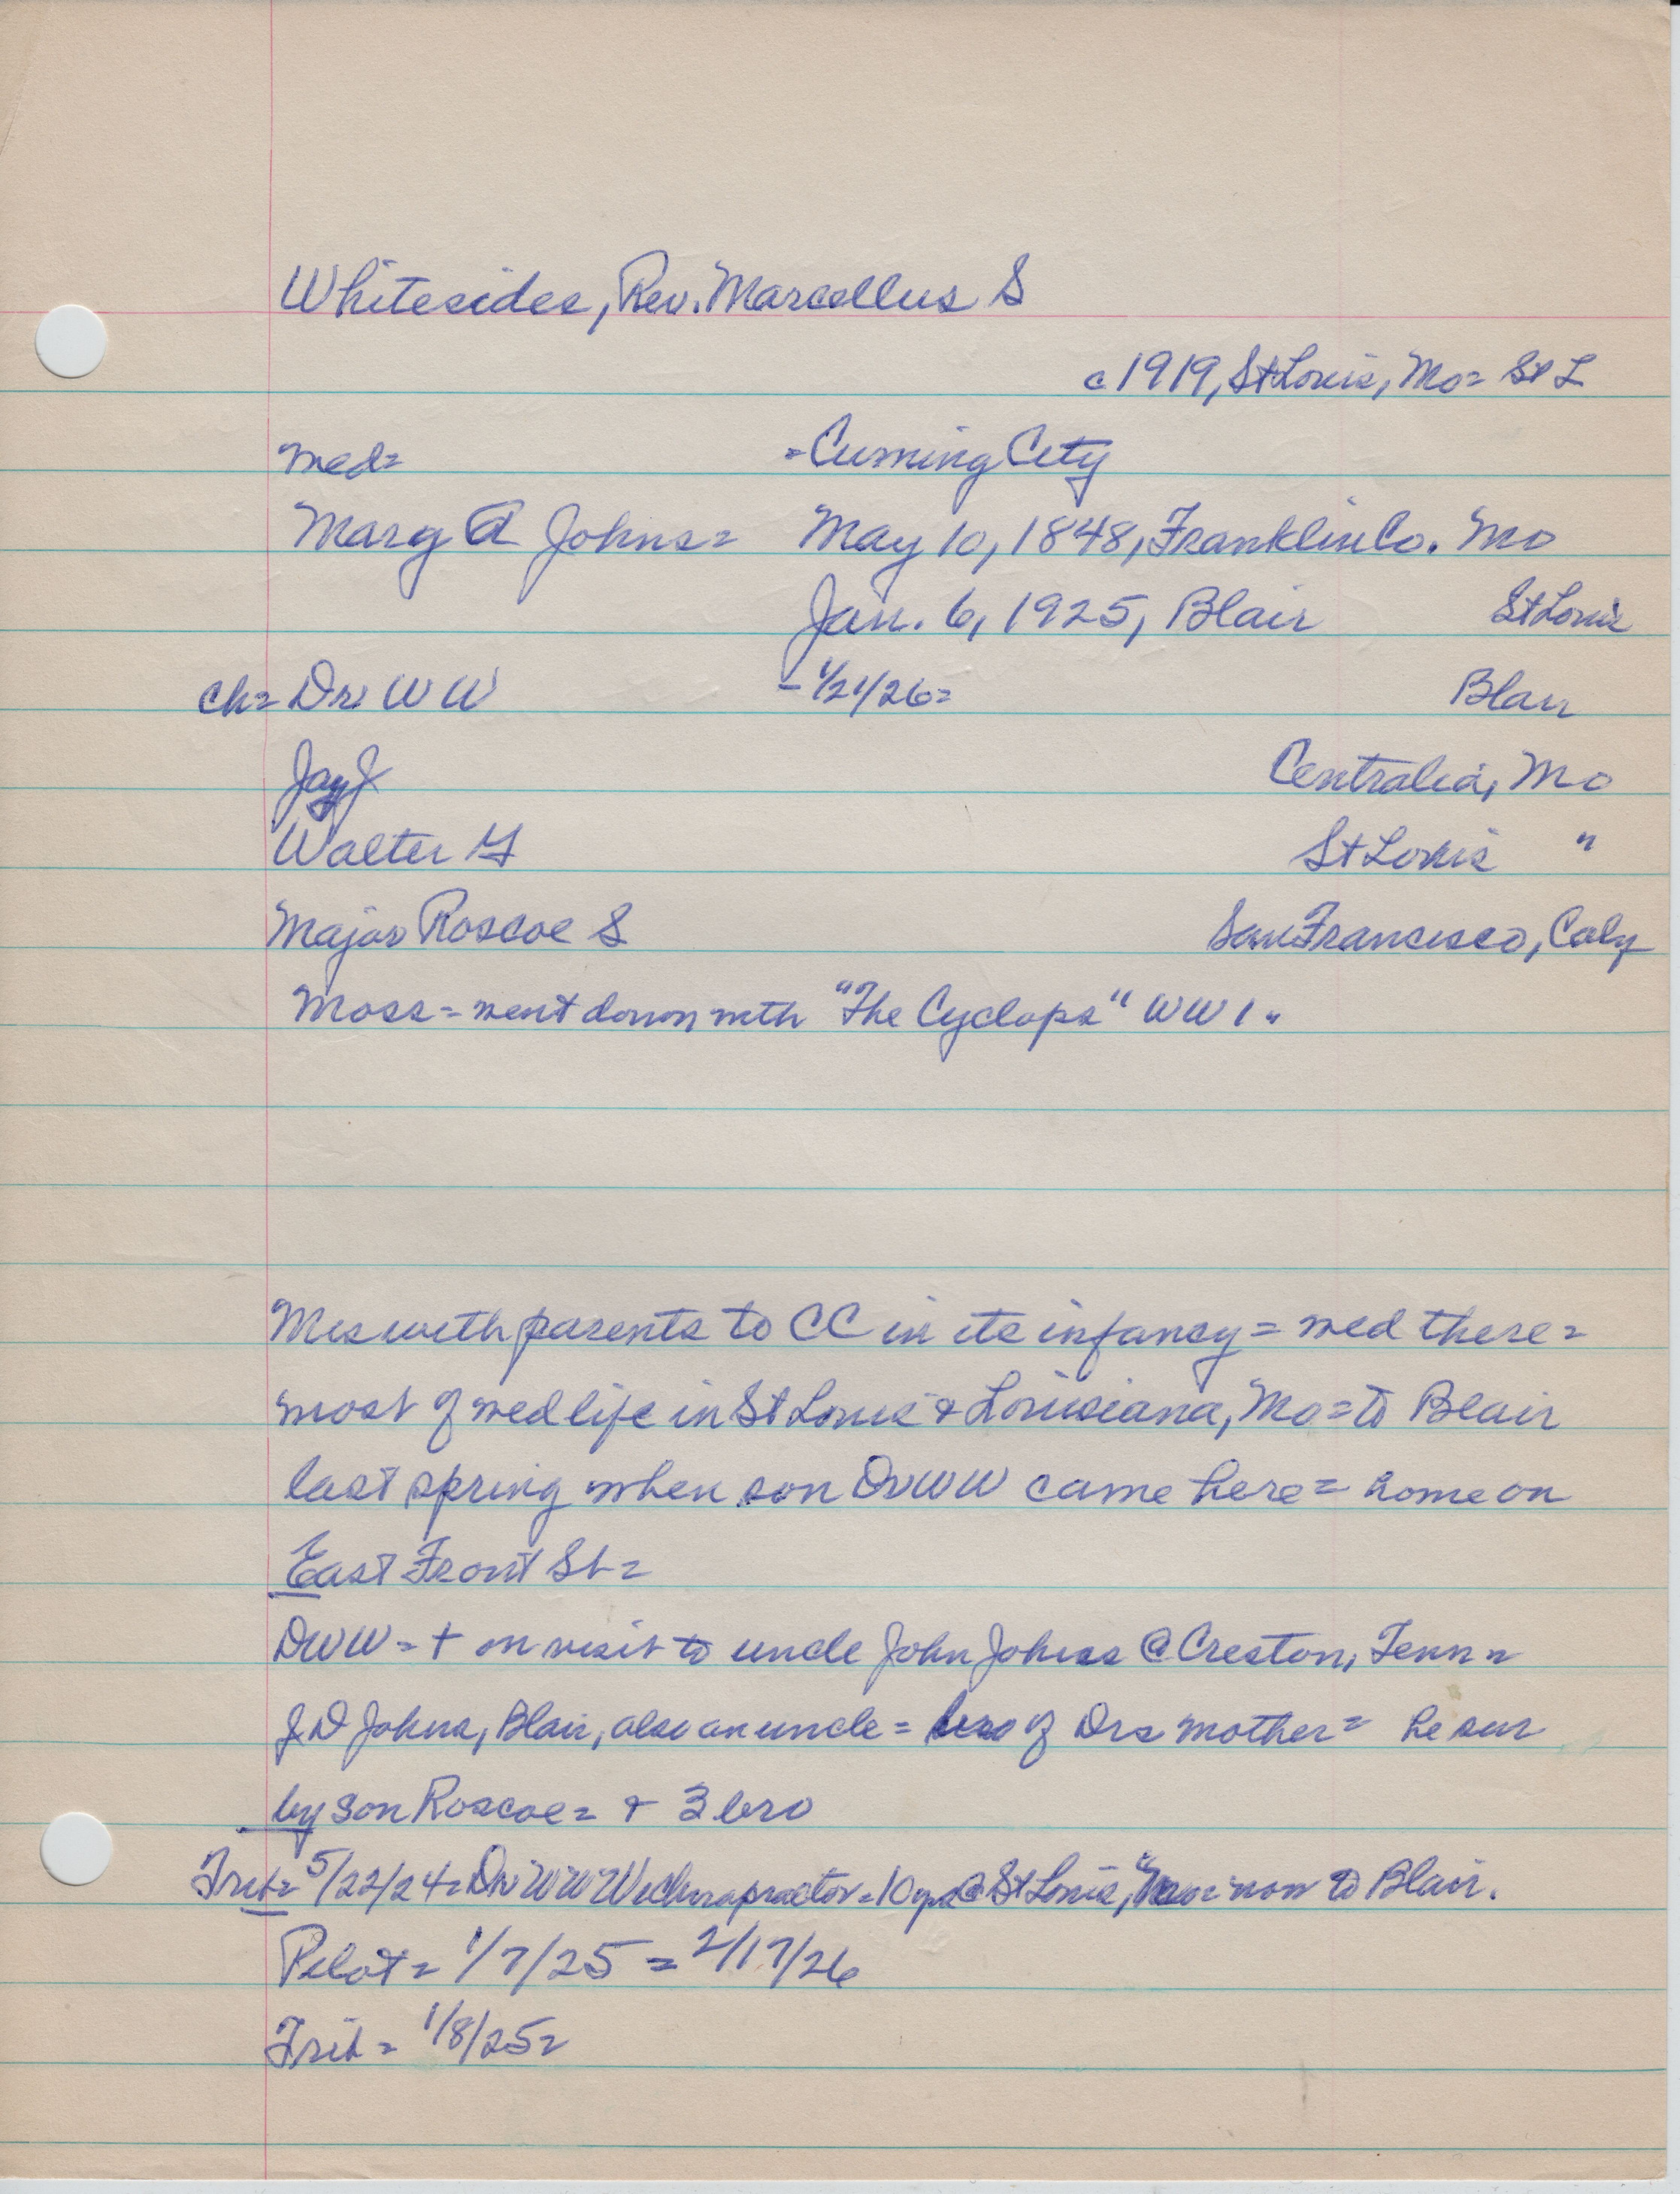 Whitesides, Rev. Marcellus S
c 1919, St Louis, Mo= St L
med= -Cuming City
Marg A Johns= May 10, 1848, Franklin Co. Mo
Jan. 6, 1925, Blair St Louis
ch= Dr W W - 1/21/26= Blair
Jay J Centralia, Mo
Walter G St Louis "
Major Roscoe S San Francisco, Calif
Moss = went down with "The Cyclops" WW 1.
Mrs with parents to CC in its infancy = med there=
most of med life in St Louis & Louisiana, Mo = to Blair
last spring when son Dr WW came here = home on
East Front St=
DWW = + on visit to uncle John Johns @ Creston, Tenn=
J D Johns, Blair, also an uncle = bro of Drs mother = he sur
by son Roscoe = + 3 bro
Trib= 5/22/24= Dr W W W chiropractor = 10 yrs @ St Louis, now to Blair.
Pilot= 1/7/25 = 2/17/26
Trib = 1/8/25=